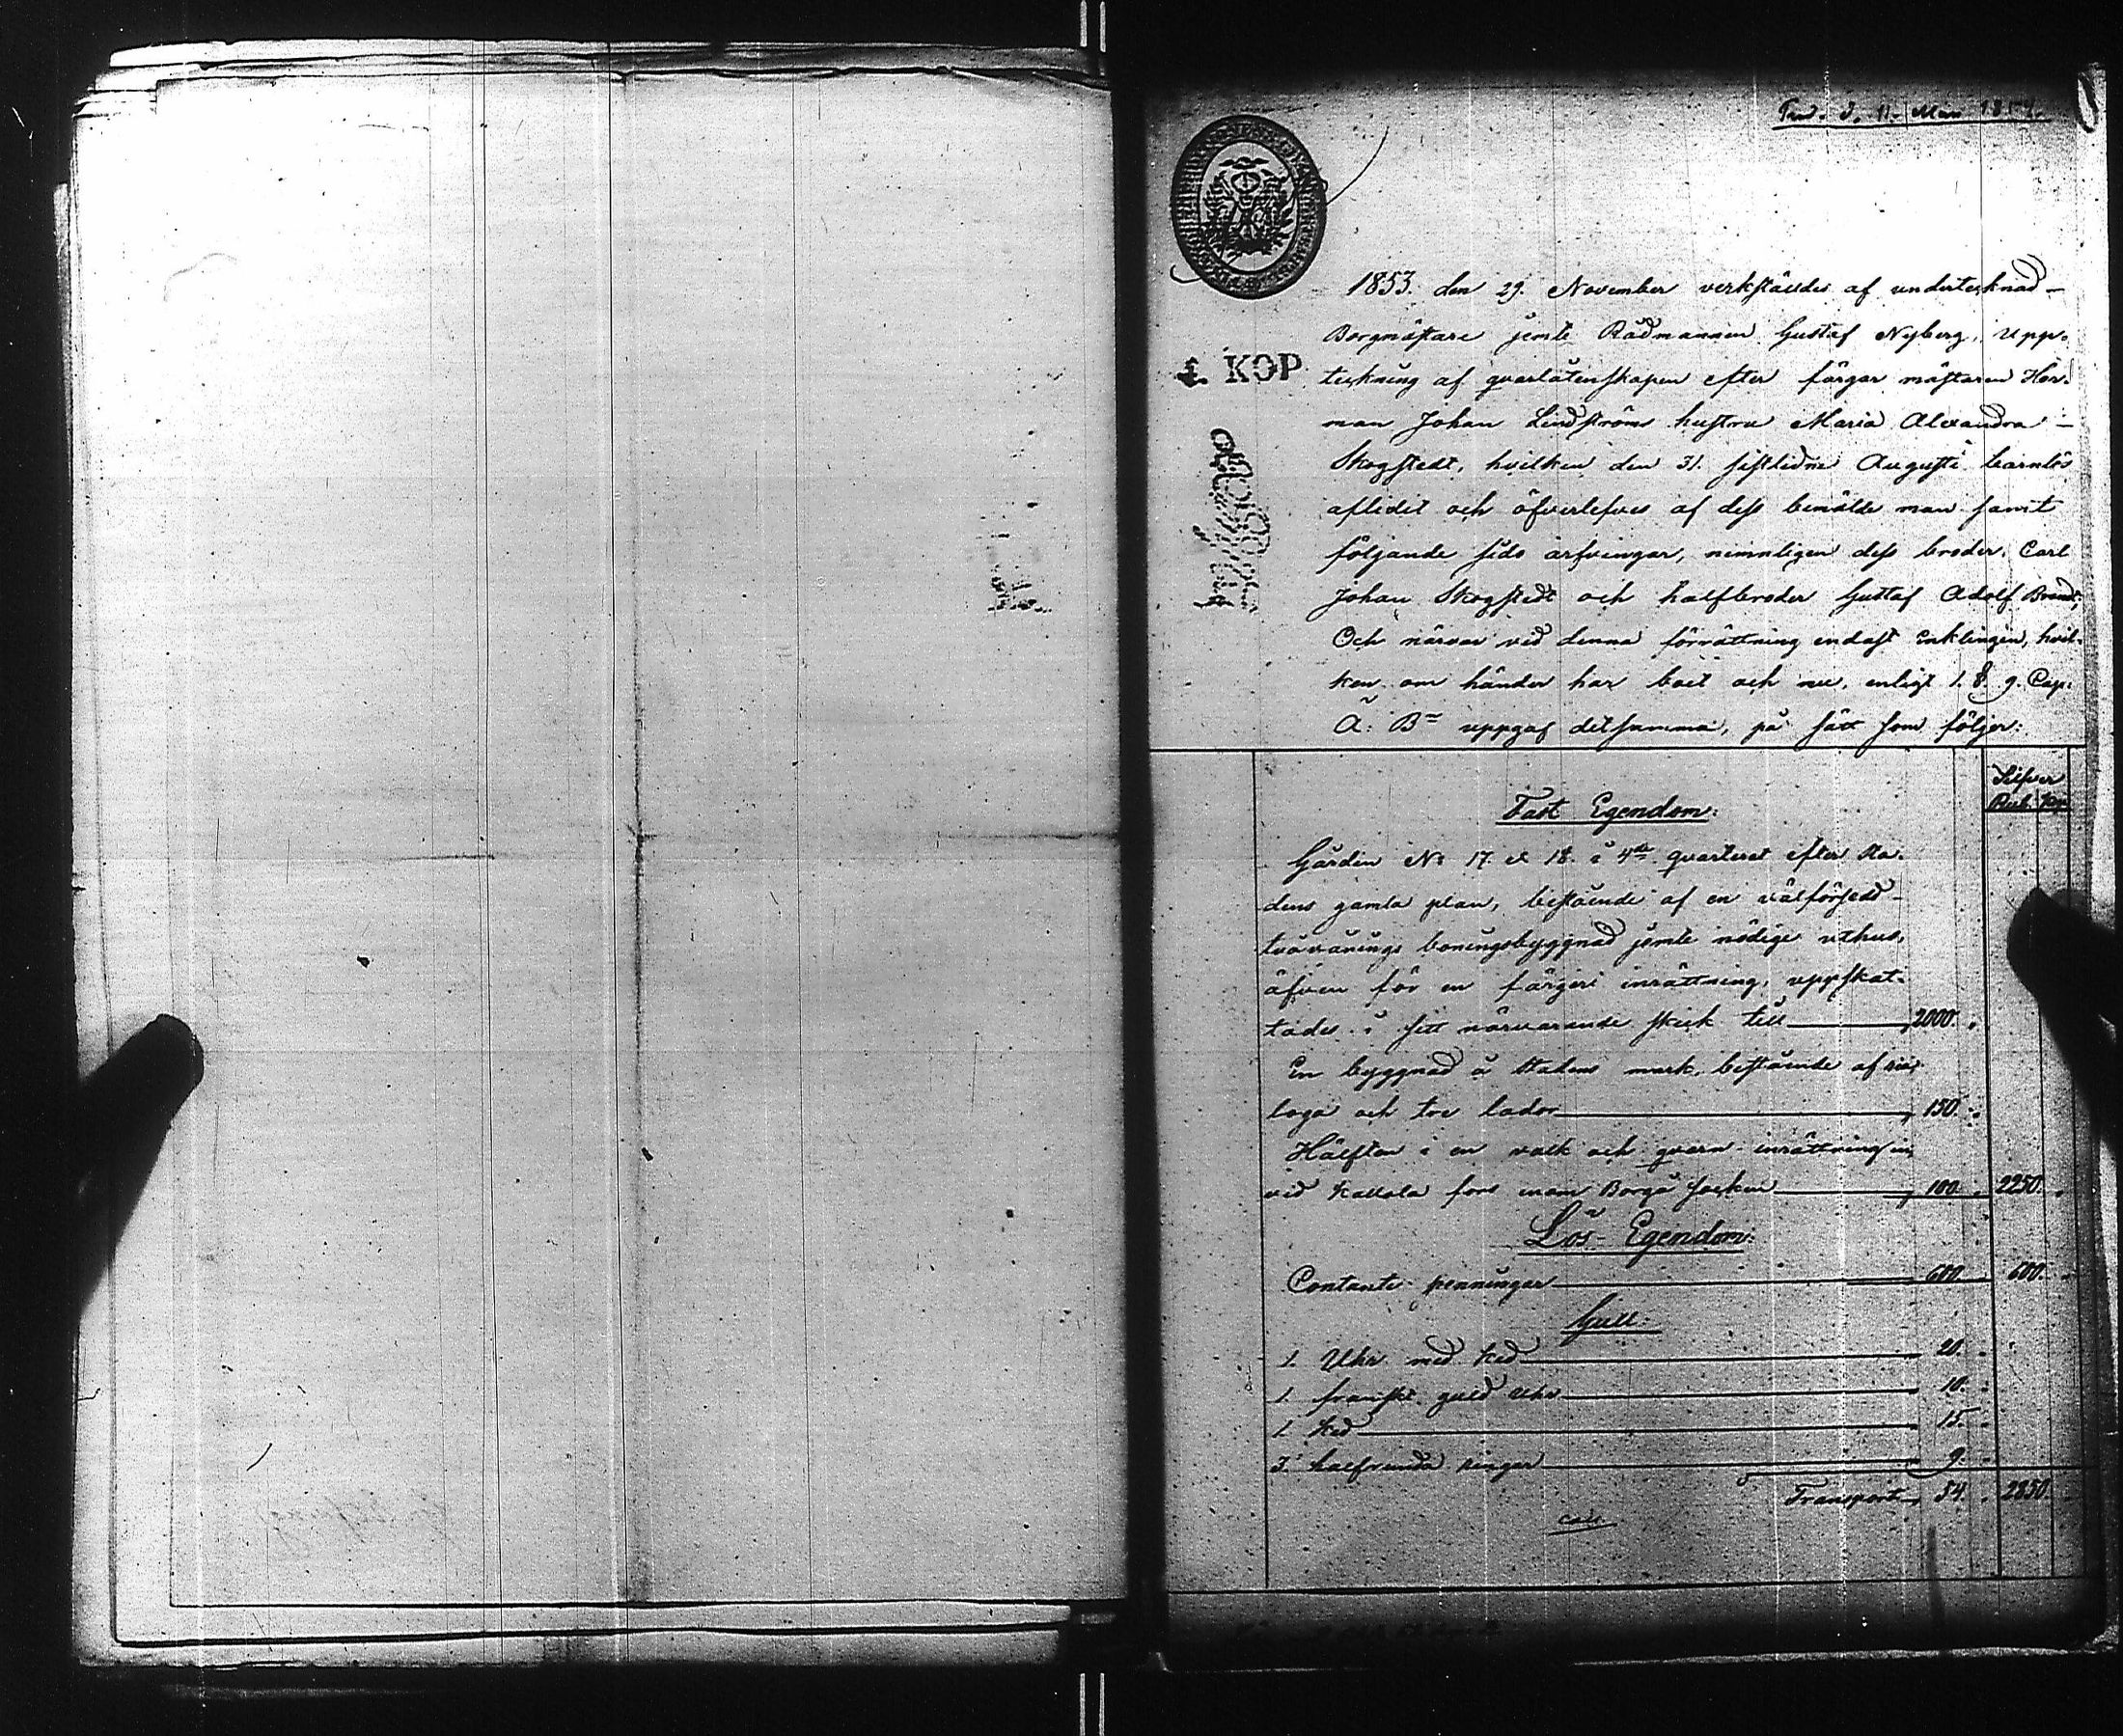 Ind. d. 11. Mars 1854.
1853. den 29. November verkstäldes af undertecknad
Borgmästare jemte Rådmannen Gustaf Nyberg, upp-
4. KOP
teckning af qvarlåtenskapen efter färgar mästaren Her-
man Johan Lindströms hustru Maria Alexandra
Skogstedt, hvilken den 31. sistlidne Augusti barnlös
aflidit och öfverlefves af dess bemälde man samt
följande sido arfvingar, nemnligen dess broder, Carl
Johan Skogstedt och halfbroder Gustaf Adolf Brandt;
Och närvar vid denna förrättning endast enklingen, hvil-
ken om händer har boet och nu, enligt 1. § 9. Cap:
Ä: B: uppgaf detsamma, på sätt som följer:
Silfver
Rub. Kop.
Fast Egendom:
Gården No 17. et 18. i 4de qvarteret efter sta-
dens gamla plan, bestående af en välförsedd
tvåvånings boningsbyggnad jemte nödige uthus,
äfven för en färgeri inrättning, uppskat-
tades i sitt närvarande skick till 2000.
En byggnad å stadens mark, bestående af ria,
loga och tre lador 150.
Hälften i en valk och qvarn inrättning
vid fors inom Borgå socken 100. 2250.
Lös Egendom:
Contante penningar 600. 600.
Gull:
1. Uhr med ked 20.
1. franskt guld uhr 10.
1. ked 15.
3. halfrunda ringar 9.
Transport 54. 2850.